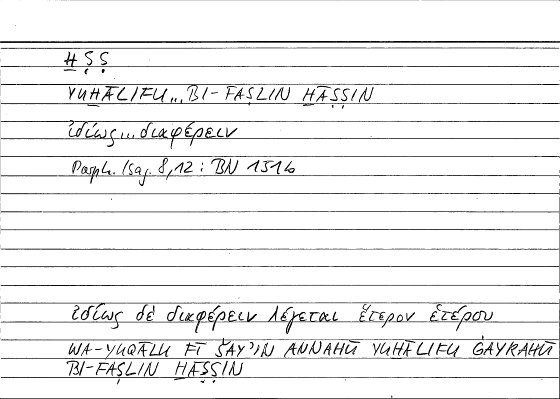 ḪṢṢ
YUḪĀLIFU... BI-FAṢLIN ḪĀṢṢIN
ἰδίως... διαφέρειν
Porph. Isag. 8,12 : BN 151b
ἰδίως δὲ διαφέρειν λέγεται ἕτερον ἑτέρου
WA-YUQĀLU FĪ ŠAY'IN ANNAHŪ YUḪĀLIFU ĠAYRAHŪ
BI-FAṢLIN ḪĀṢṢIN